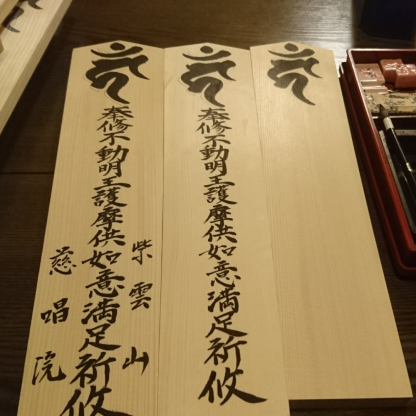 奉修不動明王護摩供如意満足祈攸
柴雲山
奉修不動明王護摩供如意満足祈攸
慈唱院